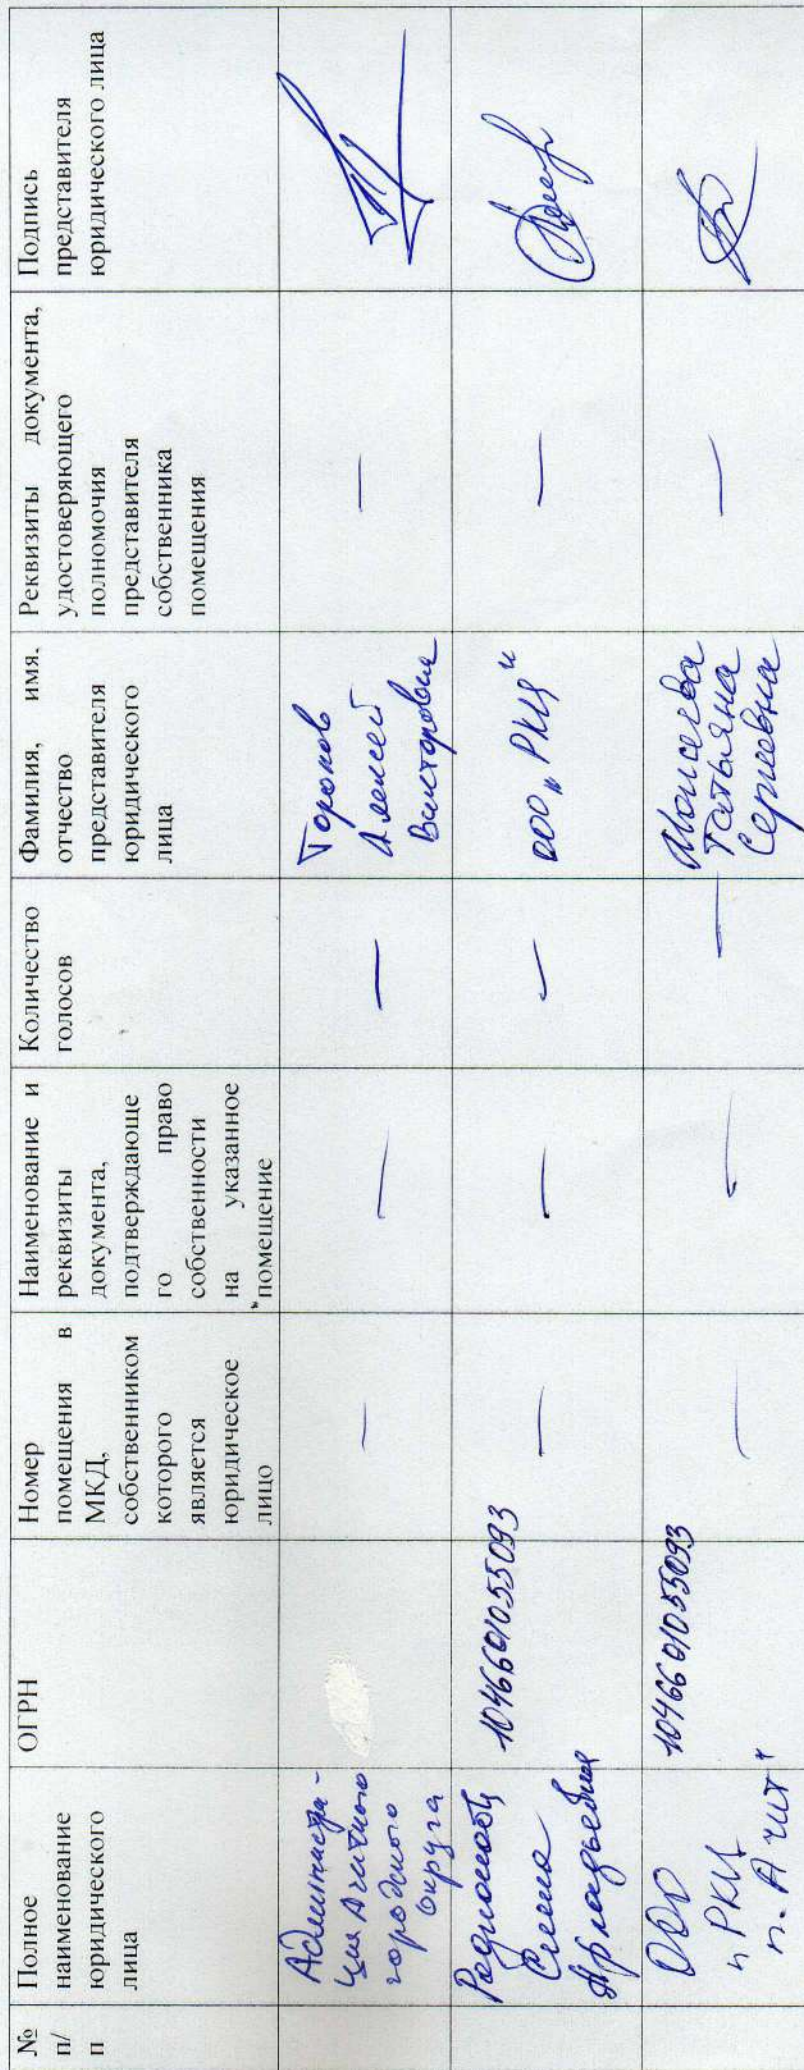 №
п/
п
Полное
наименование
юридического
лица
ОГРН
Номер
помещения в
МКД,
собственником
которого
является
юридическое
лицо
Наименование и
реквизиты
документа,
подтверждающе
го право
собственности
на указанное
помещение
Количество
голосов
Фамилия, имя.
отчество
представителя
юридического
лица
Реквизиты документа,
удостоверяющего
полномочия
представителя
собственника
помещения
Подпись
представителя
юридического лица
Администра-
ция Ачитского
городского
округа
—
—
—
Торопов
Алексей
Викторович
—
Елена
Аркадьевна
1046601055093
—
—
—
ООО „РКЦ"
—
ООО
„РКЦ
п. Ачит"
1046601055093
—
—
—
Моисеева
Татьяна
Сергеевна
—